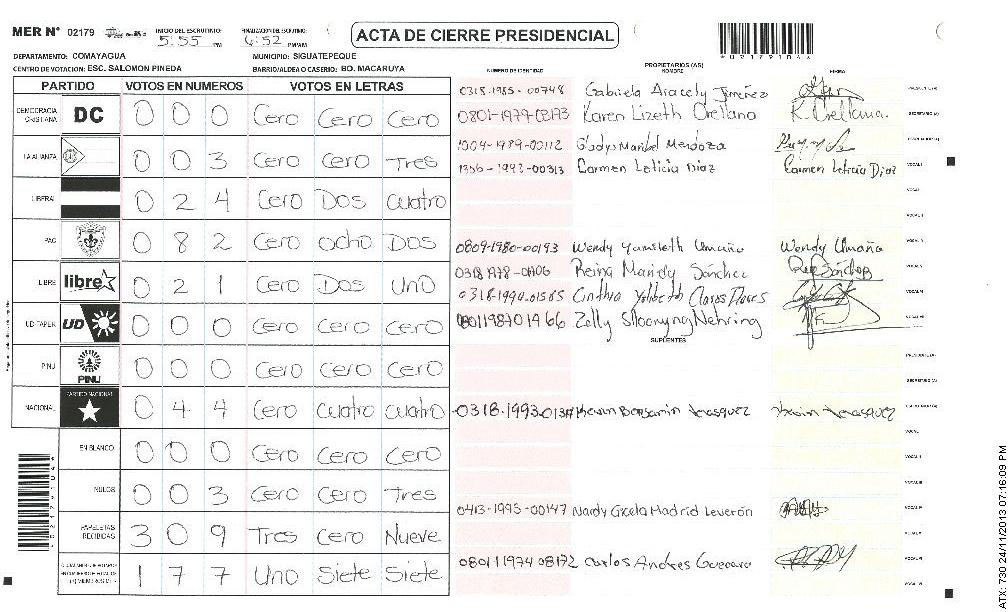 MER Nº 02179 INICIO DEL ESCRUTINIO: 5:55 PM FINALIZACION DEL ESCRUTINIO: 6:52 PM/AM ACTA DE CIERRE PRESIDENCIAL
DEPARTAMENTO: COMAYAGUA MUNICIPIO: SIGUATEPEQUE
CENTRO DE VOTACION: ESC. SALOMON PINEDA BARRIO/ALDEA O CASERIO: BO. MACARUYA
PARTIDO VOTOS EN NUMEROS VOTOS EN LETRAS
DEMOCRACIA CRISTIANA DC 0 0 0 Cero Cero Cero
LA ALIANZA 0 0 3 Cero Cero Tres
LIBERAL 0 2 4 Cero Dos Cuatro
PAC 0 8 2 Cero Ocho Dos
LIBRE libre 0 2 1 Cero Dos Uno
UD-FAPER UD 0 0 0 Cero Cero Cero
PINU PINU 0 0 0 Cero Cero Cero
NACIONAL PARTIDO NACIONAL 0 4 4 Cero Cuatro Cuatro
EN BLANCO 0 0 0 Cero Cero Cero
NULOS 0 0 3 Cero Cero Tres
PAPELETAS RECIBIDAS 3 0 9 Tres Cero Nueve
1 7 7 Uno Siete Siete
PROPIETARIOS (AS)
NUMERO DE IDENTIDAD NOMBRE FIRMA
0318-1985-00748 Gabriela Aracely Jimenez PRESIDENTE (A)
0801-1979-02173 Karen Lizeth Orellano K. Orellana. SECRETARIO (A)
1004-1989-00112 Gladys Maribel Mendoza
1356-1992-00313 Carmen Leticia Diaz Carmen Leticia Diaz VOCAL I
0809-1980-00193 Wendy Yamileth Umaña Wendy Umaña
Reina Mariely Sánchez
0318-1990-01565 Cinthia
0801198701966 Zelly Nehring
SUPLENTES
PRESIDENTE (A)
SECRETARIO (A)
Kevin Benjamin Velasquez Kevin Velasquez
0413-1995-00147 Nardy Gicela Madrid Leverón
0801197408172 Carlos Andres Guevara
ATX: 730 24/11/2013 07:16:09 PM